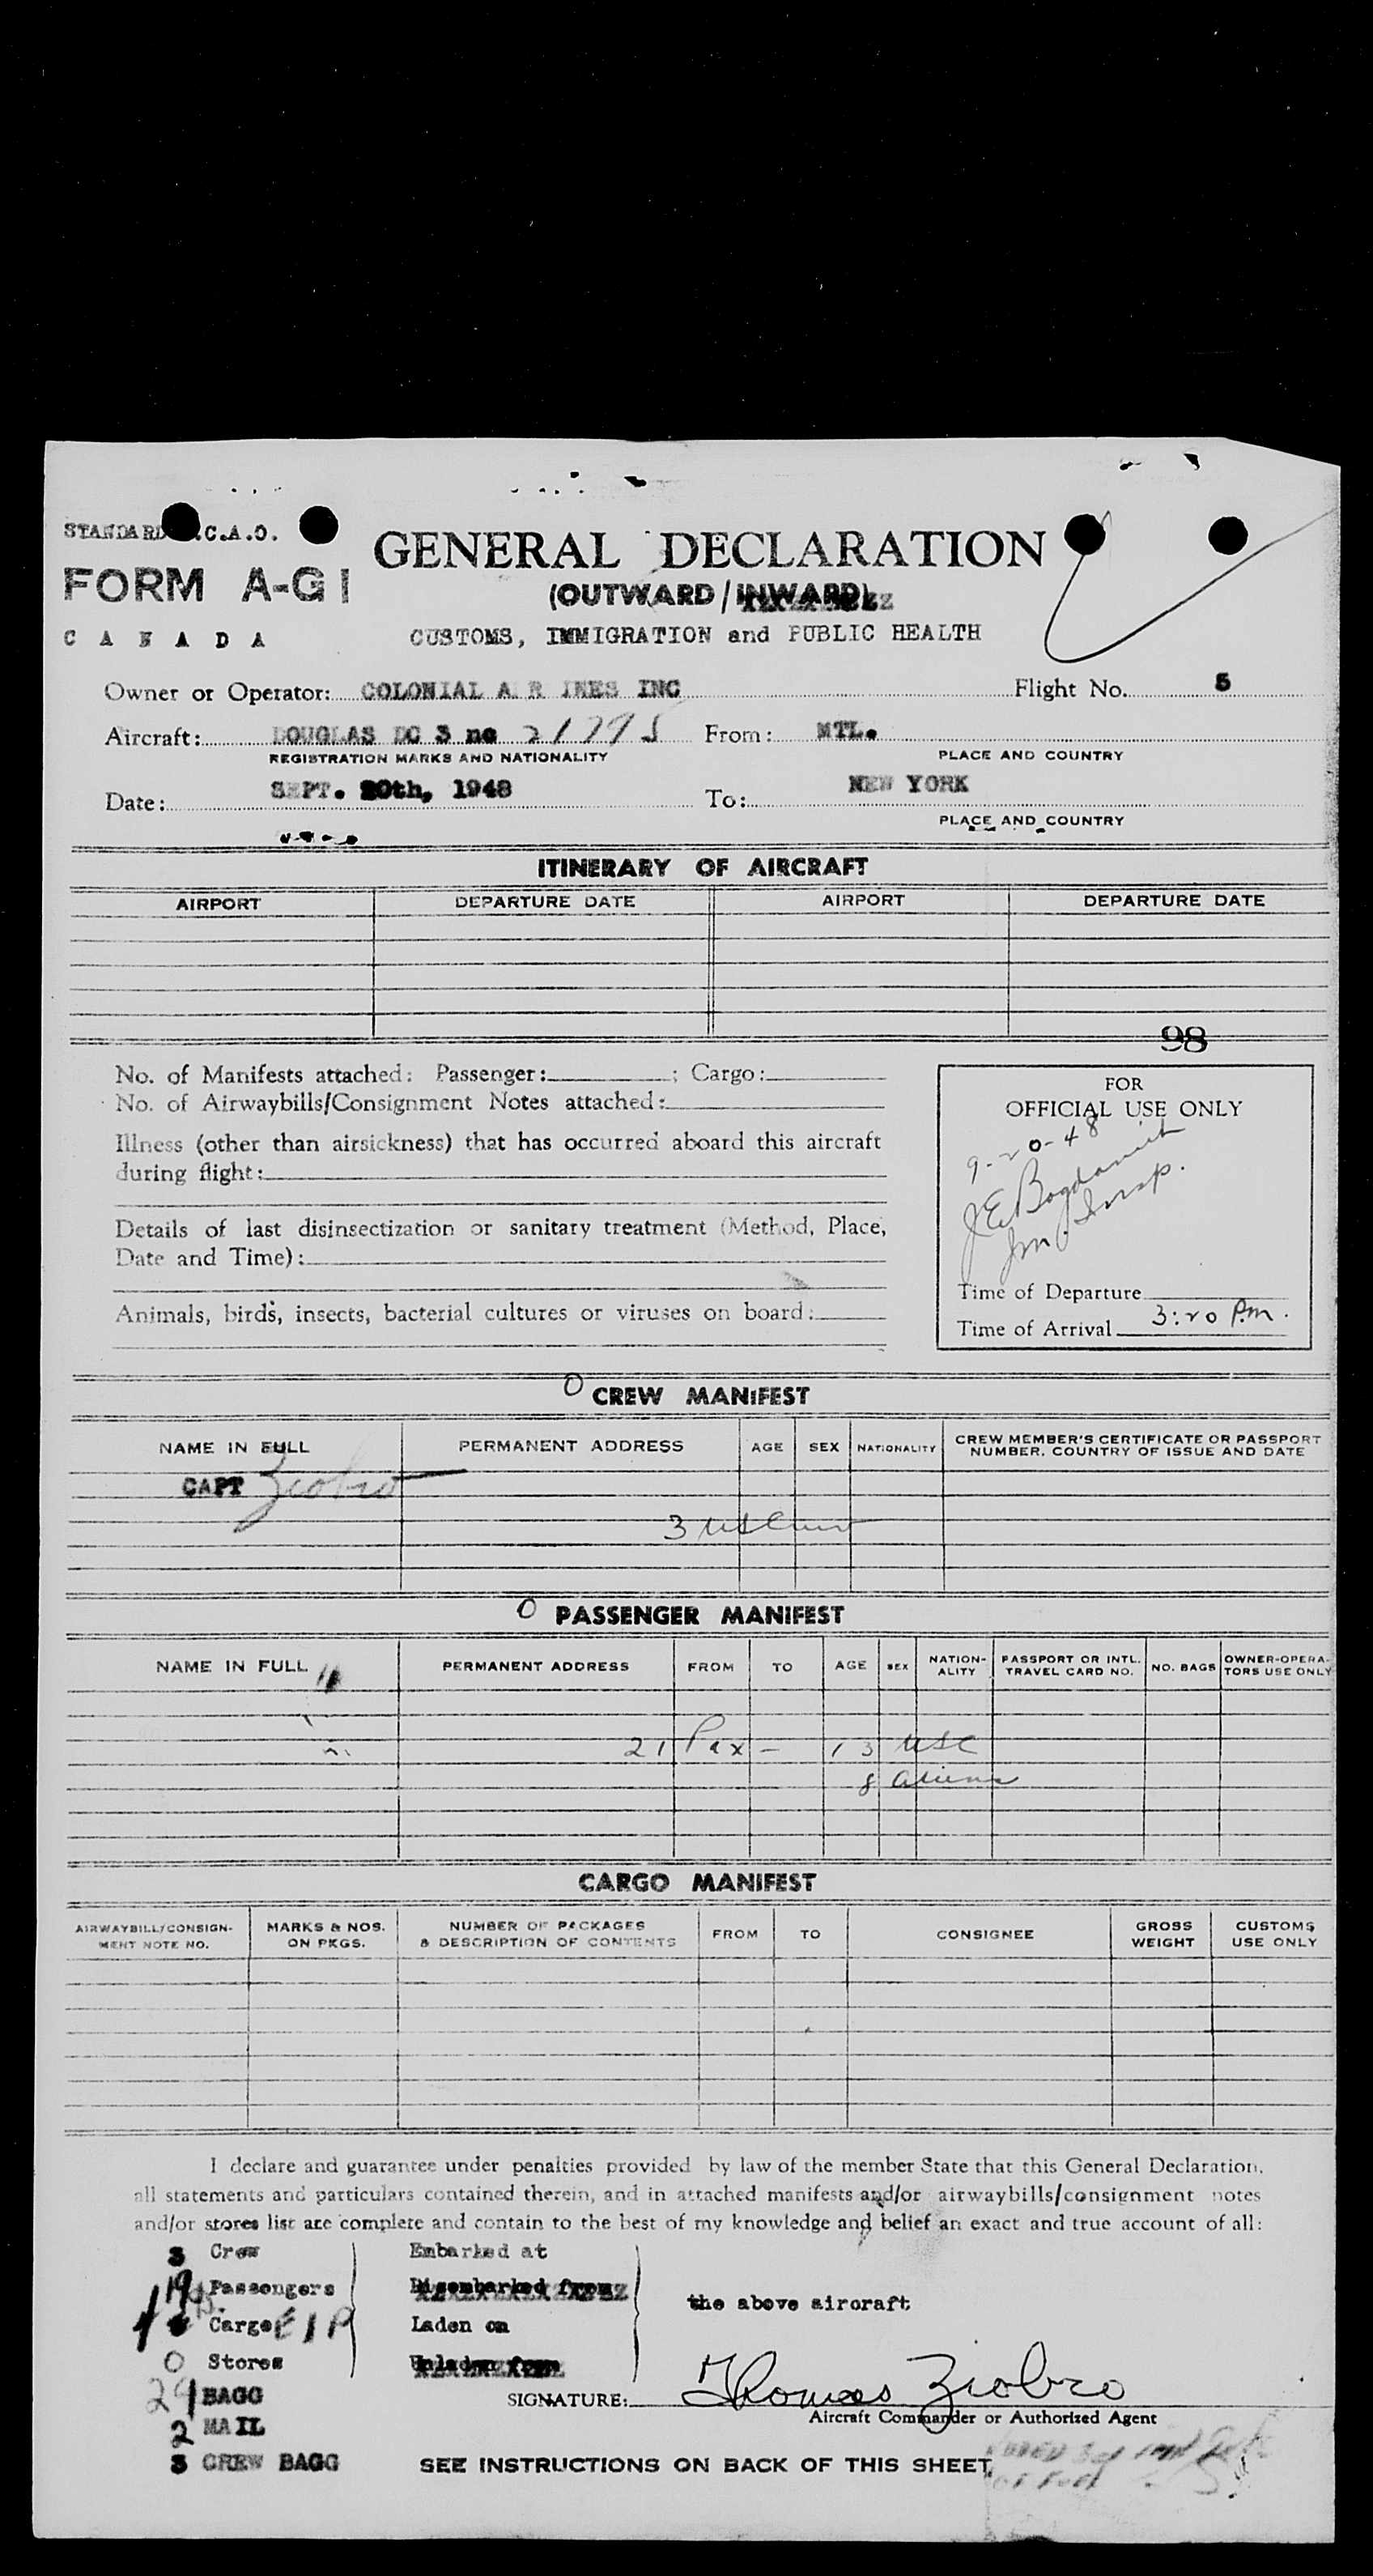 STANDARD I.C.A.O.
FORM A-G1
CANADA
GENERAL DECLARATION
(OUTWARD / INWARD)
CUSTOMS, IMMIGRATION and PUBLIC HEALTH
Owner or Operator: COLONIAL A R INES INC Flight No. 5
Aircraft: DOUGLAS DC 3 nc 21795 From: MTL.
REGISTRATION MARKS AND NATIONALITY PLACE AND COUNTRY
Date: SEPT. 20th, 1948 To: NEW YORK
PLACE AND COUNTRY
ITINERARY OF AIRCRAFT
AIRPORT DEPARTURE DATE AIRPORT DEPARTURE DATE
98
No. of Manifests attached: Passenger: ; Cargo:
No. of Airwaybills/Consignment Notes attached:
Illness (other than airsickness) that has occurred aboard this aircraft
during flight:
Details of last disinsectization or sanitary treatment (Method, Place,
Date and Time):
Animals, birds, insects, bacterial cultures or viruses on board:
FOR
OFFICIAL USE ONLY
9-20-48
Im. Insp.
Time of Departure
Time of Arrival 3:20 P.m.
O CREW MANIFEST
NAME IN FULL PERMANENT ADDRESS AGE SEX NATIONALITY CREW MEMBER'S CERTIFICATE OR PASSPORT NUMBER, COUNTRY OF ISSUE AND DATE
CAPT Ziobro
3 USC
O PASSENGER MANIFEST
NAME IN FULL PERMANENT ADDRESS FROM TO AGE SEX NATION-ALITY PASSPORT OR INTL. TRAVEL CARD NO. NO. BAGS OWNER-OPERA-TORS USE ONLY
21 Pax - 13 USC
8 aliens
CARGO MANIFEST
AIRWAYBILL/CONSIGN-MENT NOTE NO. MARKS & NOS. ON PKGS. NUMBER OF PACKAGES & DESCRIPTION OF CONTENTS FROM TO CONSIGNEE GROSS WEIGHT CUSTOMS USE ONLY
I declare and guarantee under penalties provided by law of the member State that this General Declaration,
all statements and particulars contained therein, and in attached manifests and/or airwaybills/consignment notes
and/or stores list are complete and contain to the best of my knowledge and belief an exact and true account of all:
3 Crew Embarked at
19 Passengers Disembarked from
the above aircraft
Cargo Laden on
0 Stores Unladen from
29 BAGG
SIGNATURE: Thomas Ziobro
Aircraft Commander or Authorized Agent
2 MAIL
3 CREW BAGG
SEE INSTRUCTIONS ON BACK OF THIS SHEET